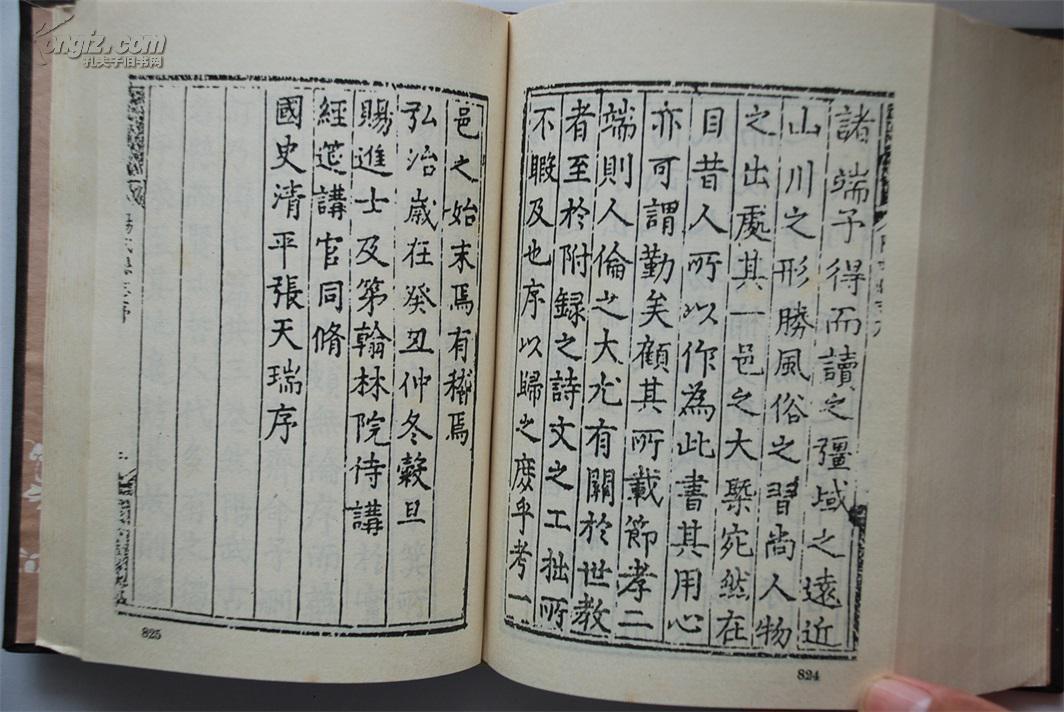 諸端予得而讀之彊域之遠近
山川之形勝風俗之習尚人物
之出處其一邑之大槩宛然在
目昔人所以作為此書其用心
亦可謂勤矣顧其所載節孝二
端則人倫之大尤有關於世教
者至於附録之詩文之工拙所
不暇及也序以歸之庶乎考一
824
邑之始末焉有稽焉
弘治嵗在癸丑仲冬穀旦
賜進士及第翰林院侍講
經筵講官同脩
國史清平張天瑞序
825
ongfz.com
孔夫子旧书网